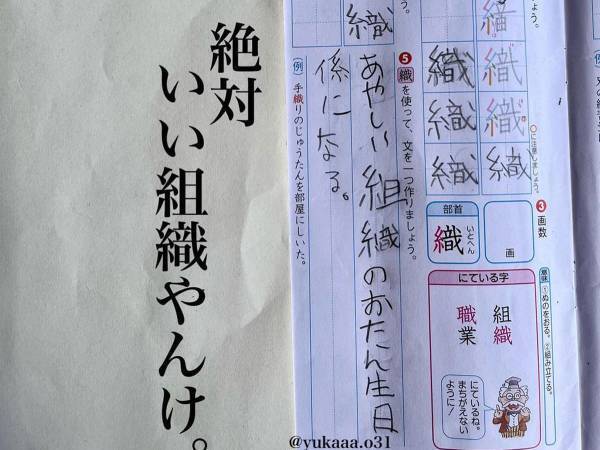 絶対
いい組織やんけ。
⑤織を使って、文を一つ作りましょう。
あやしい組織のおたん生日
係になる。
(例)手織りのじゅうたんを部屋にしいた。
織
織
織
織
織
織
織
織
織
○に注意しましょう。
③画数
画
部首
織
いとへん
意味
①ぬのをおる。②組み立てる。
にている字
組織
職業
にているね。
まちがえない
ように!
@yukaaa.o31